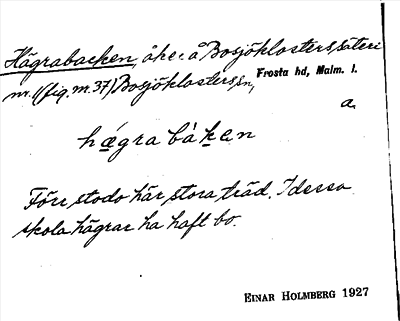 Hägrabacken, åker å Bosjöklosters säteri
nr. 1 (fig. m. 37) Bosjöklosters sn, Frosta hd, Malm. l.
a.
hägrabàken
Förr stodo här stora träd. I dessa
skola hägrar ha haft bo.
EINAR HOLMBERG 1927